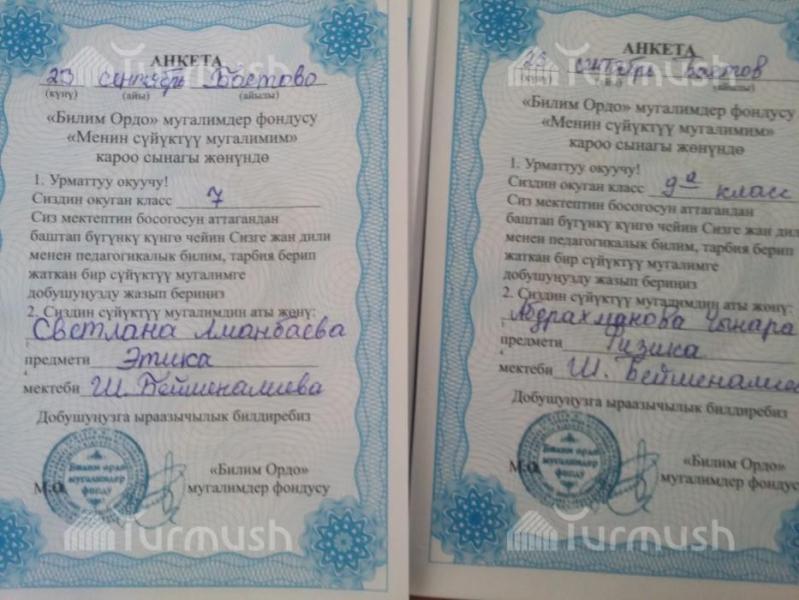 АНКЕТА
23 сентябрь Бостово
(күнү) (айы) (айылы)
«Билим Ордо» мугалимдер фондусу
«Менин сүйүктүү мугалимим»
кароо сынагы жөнүндө
1. Урматтуу окуучу!
Сиздин окуган класс 7
Сиз мектептин босогосун аттагандан
баштап бүгүнкү күнгө чейин Сизге жан дили
менен педагогикалык билим, тарбия берип
жаткан бир сүйүктүү мугалимге
добушуңузду жазып бериңиз
2. Сиздин сүйүктүү мугалимдин аты жөнү:
Светлана Аманбаева
предмети Этика
мектеби Ш. Бейшеналиева
Добушуңузга ыраазычылык билдиребиз
Билим ордо
мугалимдер
фонду
М.О.
«Билим Ордо»
мугалимдер фондусу
АНКЕТА
23 сентябрь Бостов
(күнү) (айылы)
«Билим Ордо» мугалимдер фондусу
«Менин сүйүктүү мугалимим»
кароо сынагы жөнүндө
1. Урматтуу окуучу!
Сиздин окуган класс 9а класс
Сиз мектептин босогосун аттагандан
баштап бүгүнкү күнгө чейин Сизге жан дили
менен педагогикалык билим, тарбия берип
жаткан бир сүйүктүү мугалимге
добушуңузду жазып бериңиз
2. Сиздин сүйүктүү мугалимдин аты жөнү:
Абдрахманова Чынара
предмети Физика
мектеби Ш. Бейшеналиев
Добушуңузга ыраазычылык билдиребиз
Билим ордо
мугалимдер
фонду
М.О.
«Билим Ордо»
мугалимдер фондусу
Turmush
Turmush
Turmush
Turmush